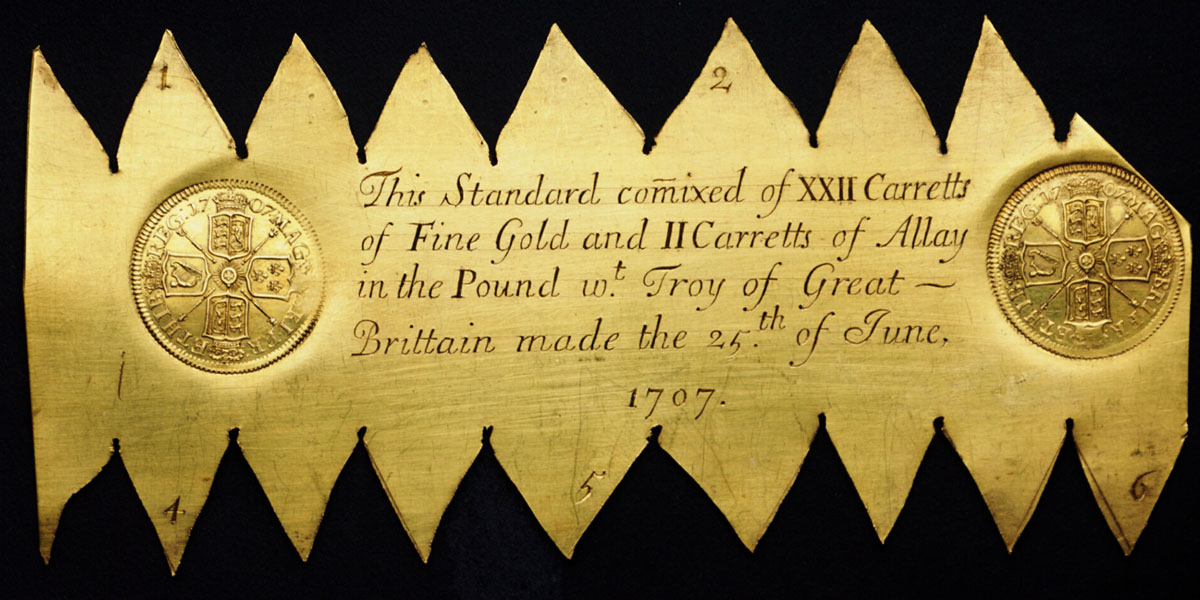 1 2
This Standard com̄ixed of XXII Carretts
of Fine Gold and II Carretts of Allay
in the Pound w.t Troy of Great —
Brittain made the 25.th of June,
1707.
4 5 6
MAG BR FR ET HIB REG 1707
MAG BR FR ET HIB REG 1707